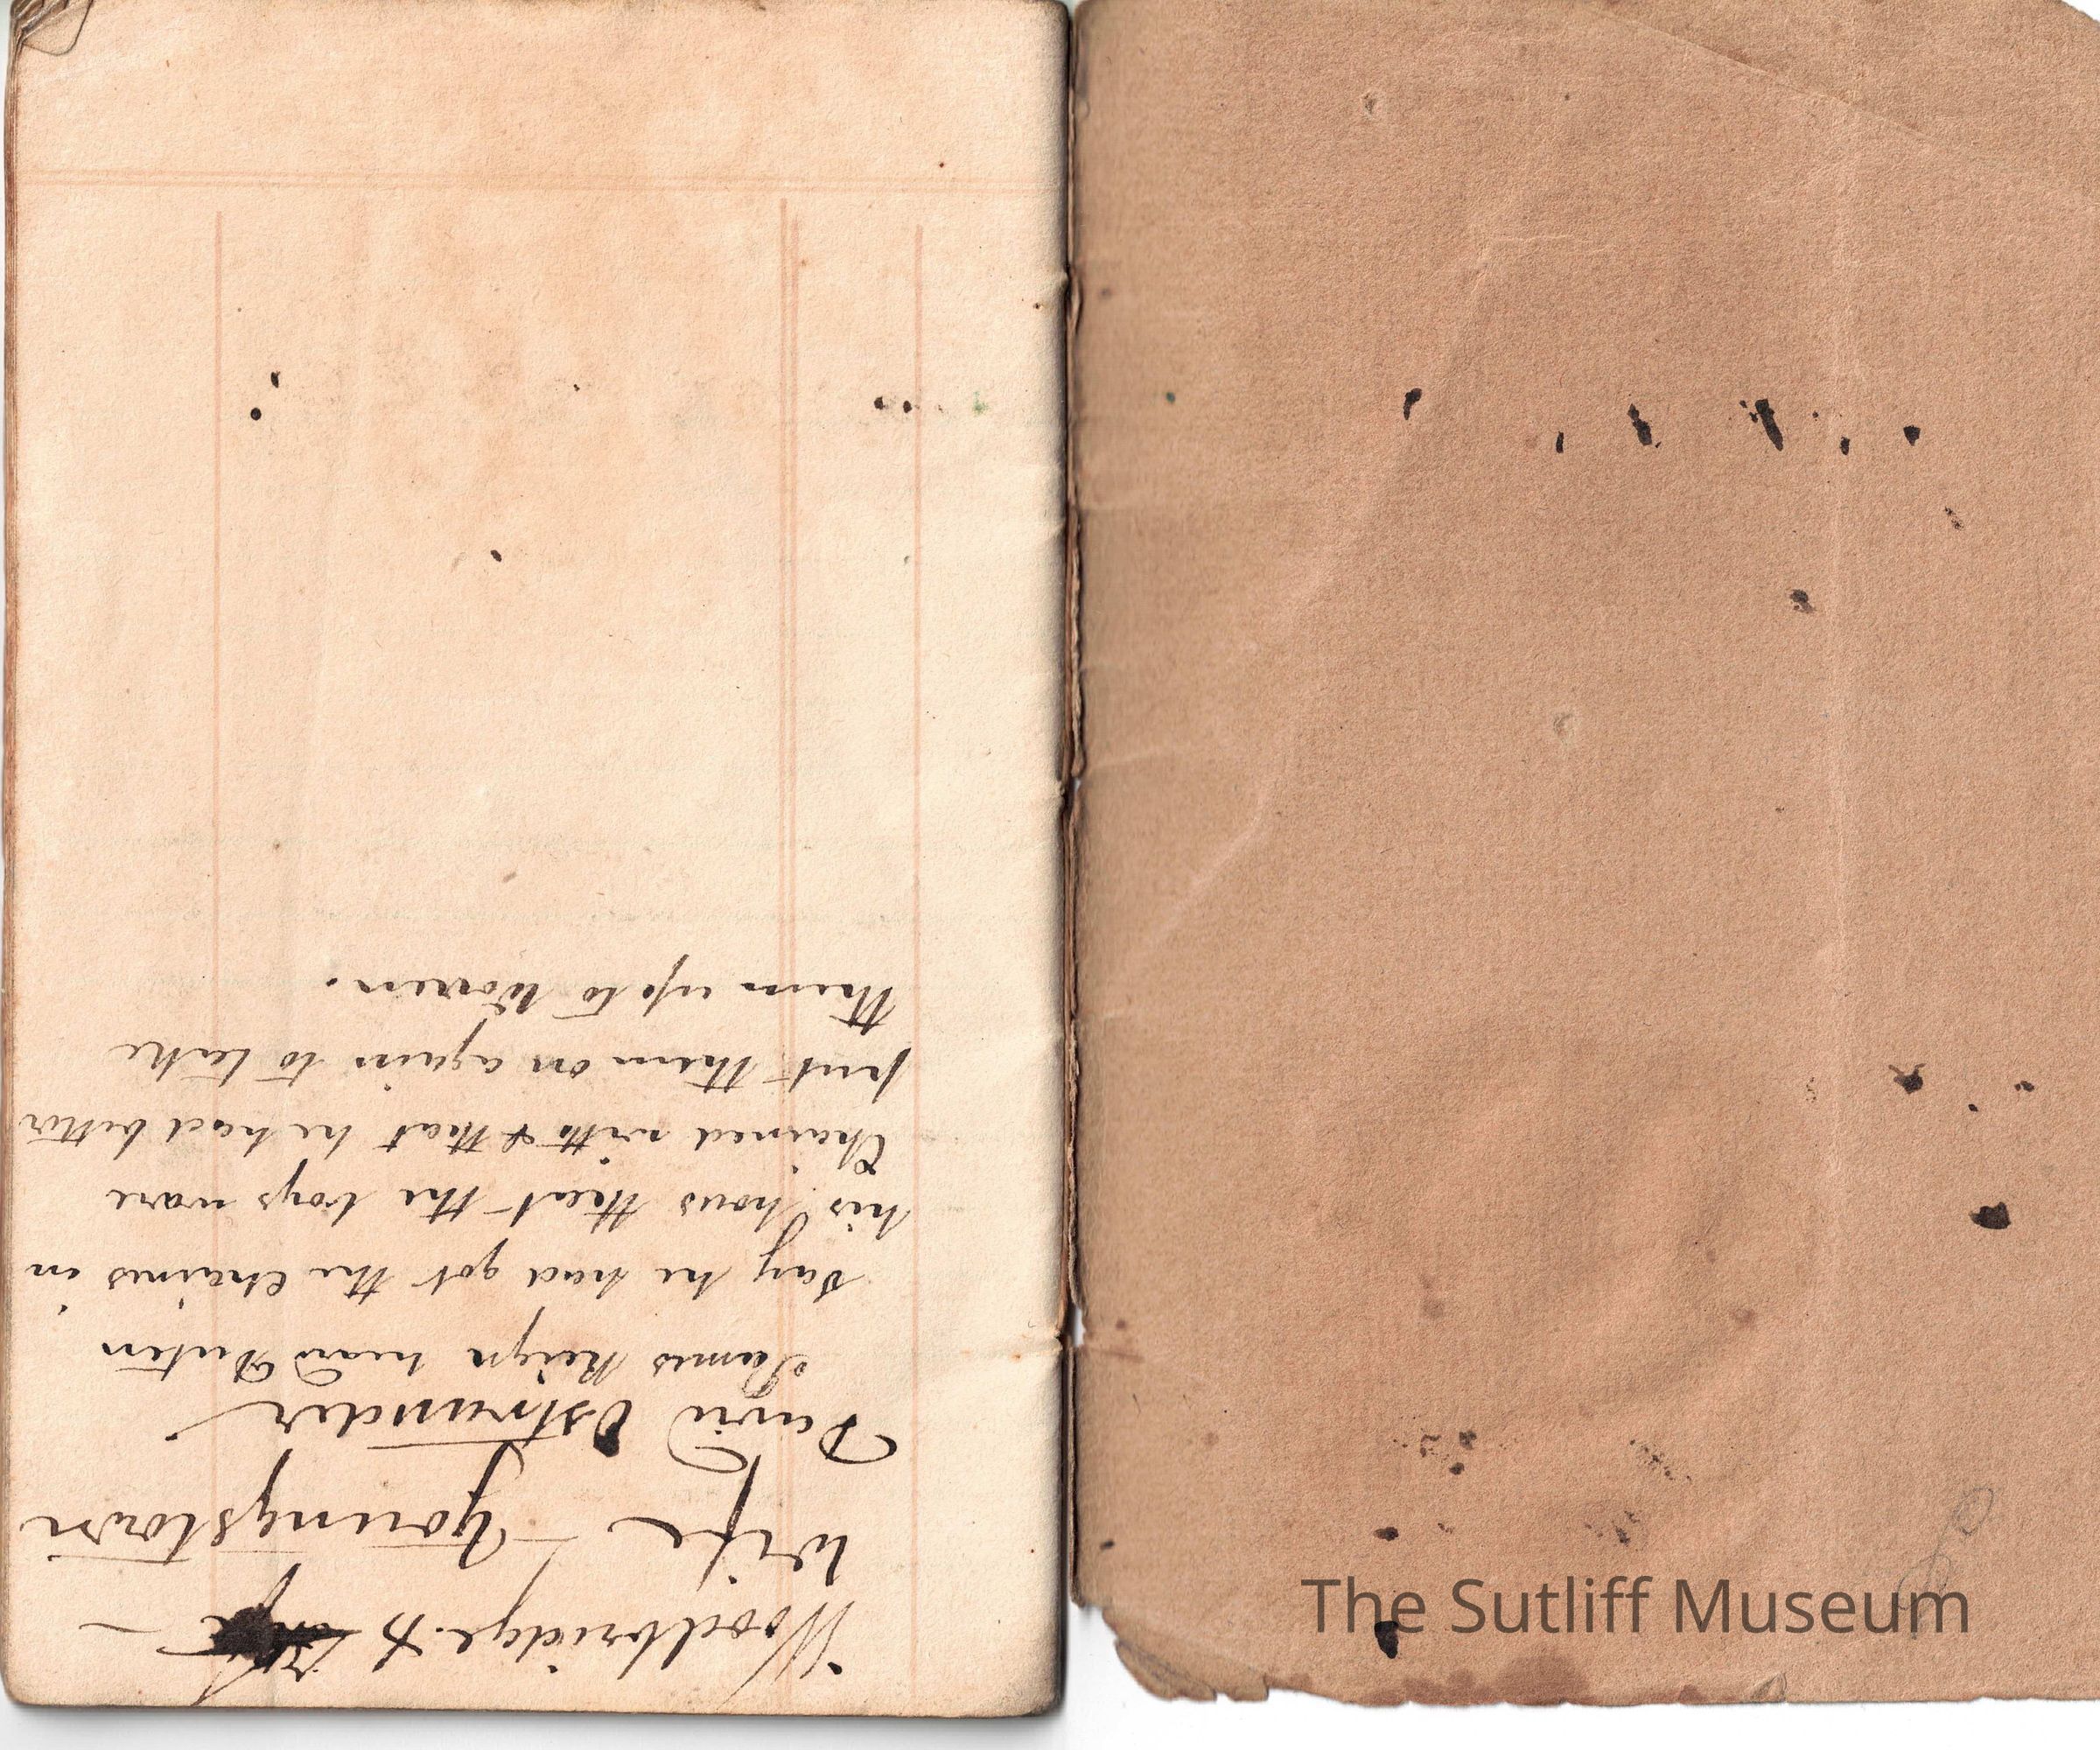 Woodbridge &
Wife — Youngstown
David Ostrander
James Reign heard
say he had got the chaines in
his hous that the boys ware
Chained with & that he had better
put them on again to take
them up to Woren.
The Sutliff Museum